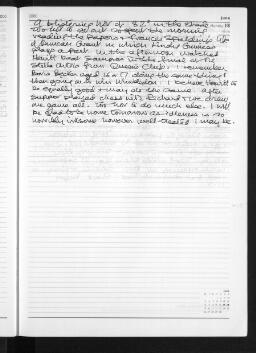 A blistering hot of 82° in the shade
so left it all out to spend the morning
reading the papers + Frances Spalding's life
of Duncan Grant in which Lindy Guinness
plays a part. In the afternoon watched
Hewitt beat Sampras in the final of the
Stella Artois from Queens Club. I remember
Boris Becker aged 16 or 17 doing the same thing +
then going on to win Wimbledon. I believe Hewitt to
be equally good + may do the same. After
supper played chess with Richard + we drew
one game all. Too hot to do much else. I will
be glad to be home tomorrow as idleness is so
horribly irksome however well-treated I may be.